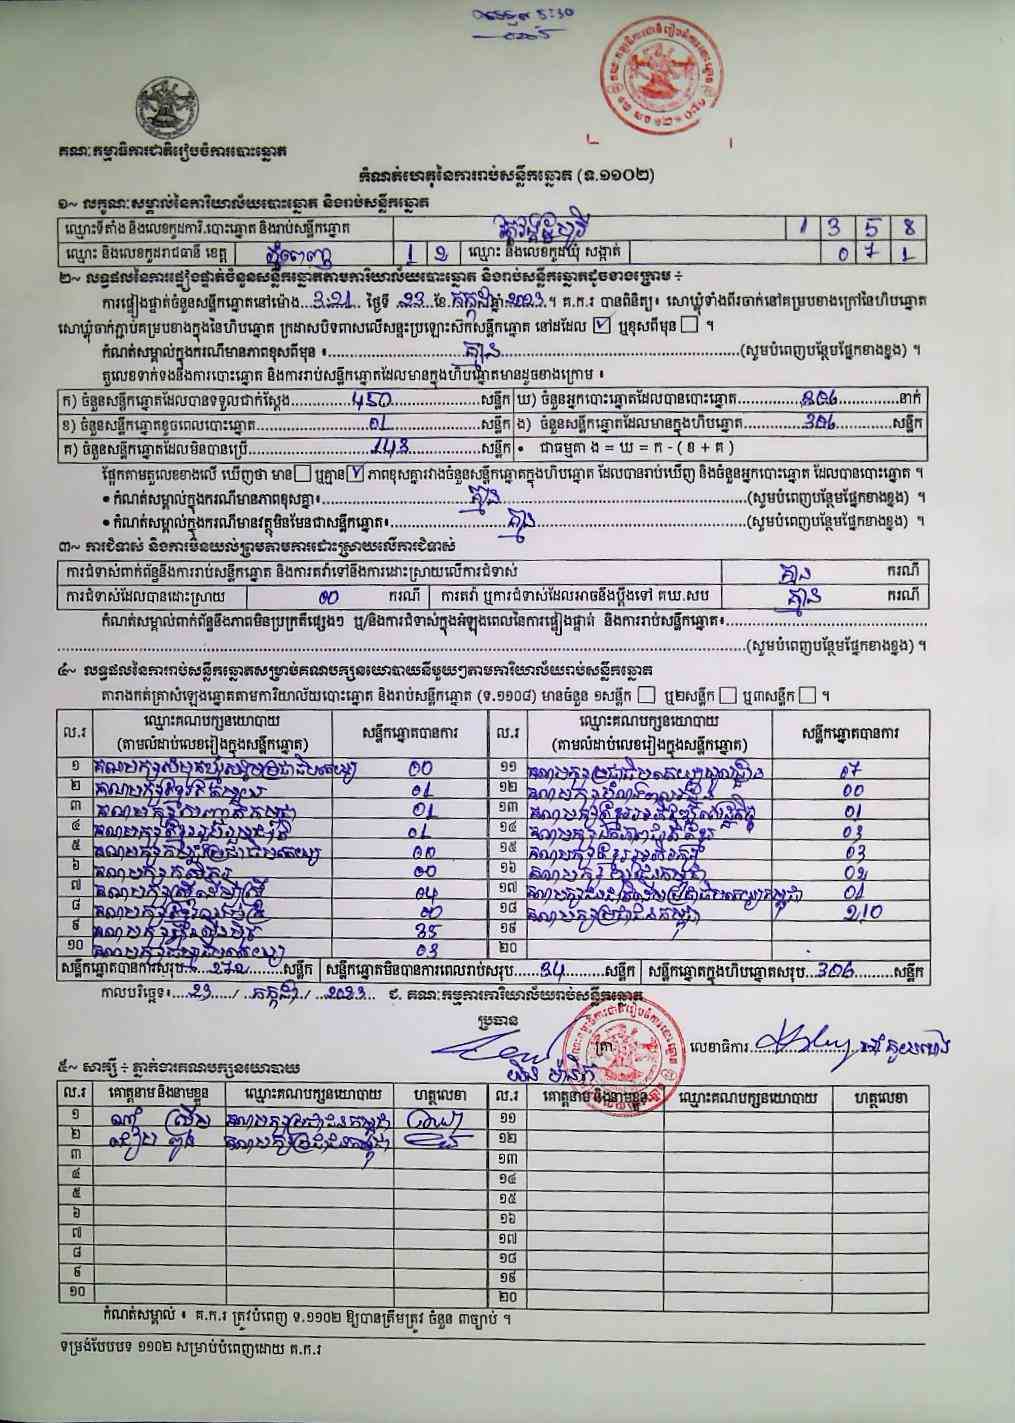 គណៈកម្មាធិការជាតិរៀបចំការបោះឆ្នោត
កំណត់ហេតុនៃការរាប់សន្លឹកឆ្នោត (ទ.១១០២)
១~ លក្ខណៈសម្គាល់នៃការិយាល័យបោះឆ្នោត និងរាប់សន្លឹកឆ្នោត
ឈ្មោះទីតាំង និងលេខកូដការិ.បោះឆ្នោត និងរាប់សន្លឹកឆ្នោត 1 3 5 8
ឈ្មោះ និងលេខកូដរាជធានី ខេត្ត ភ្នំពេញ 1 2 ឈ្មោះ និងលេខកូដឃុំ សង្កាត់ 0 7 1
២~ លទ្ធផលនៃការផ្ទៀងផ្ទាត់ចំនួនសន្លឹកឆ្នោតតាមការិយាល័យបោះឆ្នោត និងរាប់សន្លឹកឆ្នោតដូចខាងក្រោម ៖
ការផ្ទៀងផ្ទាត់ចំនួនសន្លឹកឆ្នោតនៅម៉ោង...3:21... ថ្ងៃទី...23...ខែ.កក្កដា.ឆ្នាំ.2023.។ គ.ក.រ បានពិនិត្យ៖ សោឃ្លុំទាំងពីរចាក់នៅគម្របខាងក្រៅនៃហិបឆ្នោត
សោឃ្លុំចាក់ភ្ជាប់គម្របខាងក្នុងនៃហិបឆ្នោត ក្រដាសបិទពាសលើសន្ទះប្រឡោះស៊កសន្លឹកឆ្នោត នៅដដែល ☑ ឬខុសពីមុន ☐ ។
កំណត់សម្គាល់ក្នុងករណីមានភាពខុសពីមុន ៖...គ្មាន...(សូមបំពេញបន្ថែមផ្នែកខាងខ្នង) ។
តួលេខទាក់ទងនឹងការបោះឆ្នោត និងការរាប់សន្លឹកឆ្នោតដែលមានក្នុងហិបឆ្នោតមានដូចខាងក្រោម ៖
ក) ចំនួនសន្លឹកឆ្នោតដែលបានទទួលជាក់ស្តែង...450...សន្លឹក ឃ) ចំនួនអ្នកបោះឆ្នោតដែលបានបោះឆ្នោត...306...នាក់
ខ) ចំនួនសន្លឹកឆ្នោតខូចពេលបោះឆ្នោត...01...សន្លឹក ង) ចំនួនសន្លឹកឆ្នោតដែលមានក្នុងហិបឆ្នោត...306...សន្លឹក
គ) ចំនួនសន្លឹកឆ្នោតដែលមិនបានប្រើ...143...សន្លឹក • ជាធម្មតា ង = ឃ = ក - ( ខ + គ )
ផ្អែកតាមតួលេខខាងលើ ឃើញថា មាន ☐ ឬគ្មាន ☑ ភាពខុសគ្នារវាងចំនួនសន្លឹកឆ្នោតក្នុងហិបឆ្នោត ដែលបានរាប់ឃើញ និងចំនួនអ្នកបោះឆ្នោត ដែលបានបោះឆ្នោត ។
• កំណត់សម្គាល់ក្នុងករណីមានភាពខុសគ្នា៖...គ្មាន...(សូមបំពេញបន្ថែមផ្នែកខាងខ្នង) ។
• កំណត់សម្គាល់ក្នុងករណីមានវត្ថុមិនមែនជាសន្លឹកឆ្នោត៖...គ្មាន...(សូមបំពេញបន្ថែមផ្នែកខាងខ្នង) ។
៣~ ការជំទាស់ និងការមិនយល់ព្រមតាមការដោះស្រាយលើការជំទាស់
ការជំទាស់ពាក់ព័ន្ធនឹងការរាប់សន្លឹកឆ្នោត និងការតវ៉ាទៅនឹងការដោះស្រាយលើការជំទាស់ គ្មាន ករណី
ការជំទាស់ដែលបានដោះស្រាយ 00 ករណី ការតវ៉ា ឬការជំទាស់ដែលអាចនឹងប្តឹងទៅ គឃ.សប គ្មាន ករណី
កំណត់សម្គាល់ពាក់ព័ន្ធនឹងភាពមិនប្រក្រតីផ្សេងៗ ឬ/និងការជំទាស់ក្នុងអំឡុងពេលនៃការផ្ទៀងផ្ទាត់ និងការរាប់សន្លឹកឆ្នោត៖...
...(សូមបំពេញបន្ថែមផ្នែកខាងខ្នង) ។
៤~ លទ្ធផលនៃការរាប់សន្លឹកឆ្នោតសម្រាប់គណបក្សនយោបាយនីមួយៗតាមការិយាល័យរាប់សន្លឹកឆ្នោត
តារាងកត់ត្រាសំឡេងឆ្នោតតាមការិយាល័យបោះឆ្នោត និងរាប់សន្លឹកឆ្នោត (ទ.១១០៨) មានចំនួន ១សន្លឹក ☐ ឬ២សន្លឹក ☐ ឬ៣សន្លឹក ☐ ។
ល.រ ឈ្មោះគណបក្សនយោបាយ (តាមលំដាប់លេខរៀងក្នុងសន្លឹកឆ្នោត) សន្លឹកឆ្នោតបានការ ល.រ ឈ្មោះគណបក្សនយោបាយ (តាមលំដាប់លេខរៀងក្នុងសន្លឹកឆ្នោត) សន្លឹកឆ្នោតបានការ
១ គណបក្សសំបុកឃ្មុំសង្គមប្រជាធិបតេយ្យ 00 ១១ 07
២ 01 ១២ 00
៣ គណបក្សសញ្ជាតិកម្ពុជា 01 ១៣ 01
៤ គណបក្សខ្មែររួបរួមជាតិ 01 ១៤ 03
៥ 00 ១៥ 03
៦ គណបក្សកសិករ 00 ១៦ 02
៧ គណបក្សស្ត្រីដើម្បីស្ត្រី 04 ១៧ 01
៨ 00 ១៨ គណបក្សប្រជាជនកម្ពុជា 210
៩ គណបក្សហ៊្វុនស៊ិនប៉ិច 35 ១៩
១០ 03 ២០
សន្លឹកឆ្នោតបានការសរុប...272...សន្លឹក សន្លឹកឆ្នោតមិនបានការពេលរាប់សរុប...34...សន្លឹក សន្លឹកឆ្នោតក្នុងហិបឆ្នោតសរុប...306...សន្លឹក
កាលបរិច្ឆេទ៖...23.../...កក្កដា.../...2023... ជ. គណៈកម្មការការិយាល័យរាប់សន្លឹកឆ្នោត
ប្រធាន
ត្រា លេខាធិការ...
៥~ សាក្សី ៖ ភ្នាក់ងារគណបក្សនយោបាយ
ល.រ គោត្តនាម និងនាមខ្លួន ឈ្មោះគណបក្សនយោបាយ ហត្ថលេខា ល.រ គោត្តនាម និងនាមខ្លួន ឈ្មោះគណបក្សនយោបាយ ហត្ថលេខា
១ គណបក្សប្រជាជនកម្ពុជា ១១
២ គណបក្សប្រជាជនកម្ពុជា ១២
៣ ១៣
៤ ១៤
៥ ១៥
៦ ១៦
៧ ១៧
៨ ១៨
៩ ១៩
១០ ២០
កំណត់សម្គាល់ ៖ គ.ក.រ ត្រូវបំពេញ ទ.១១០២ ឱ្យបានត្រឹមត្រូវ ចំនួន ៣ច្បាប់ ។
ទម្រង់បែបបទ ១១០២ សម្រាប់បំពេញដោយ គ.ក.រ